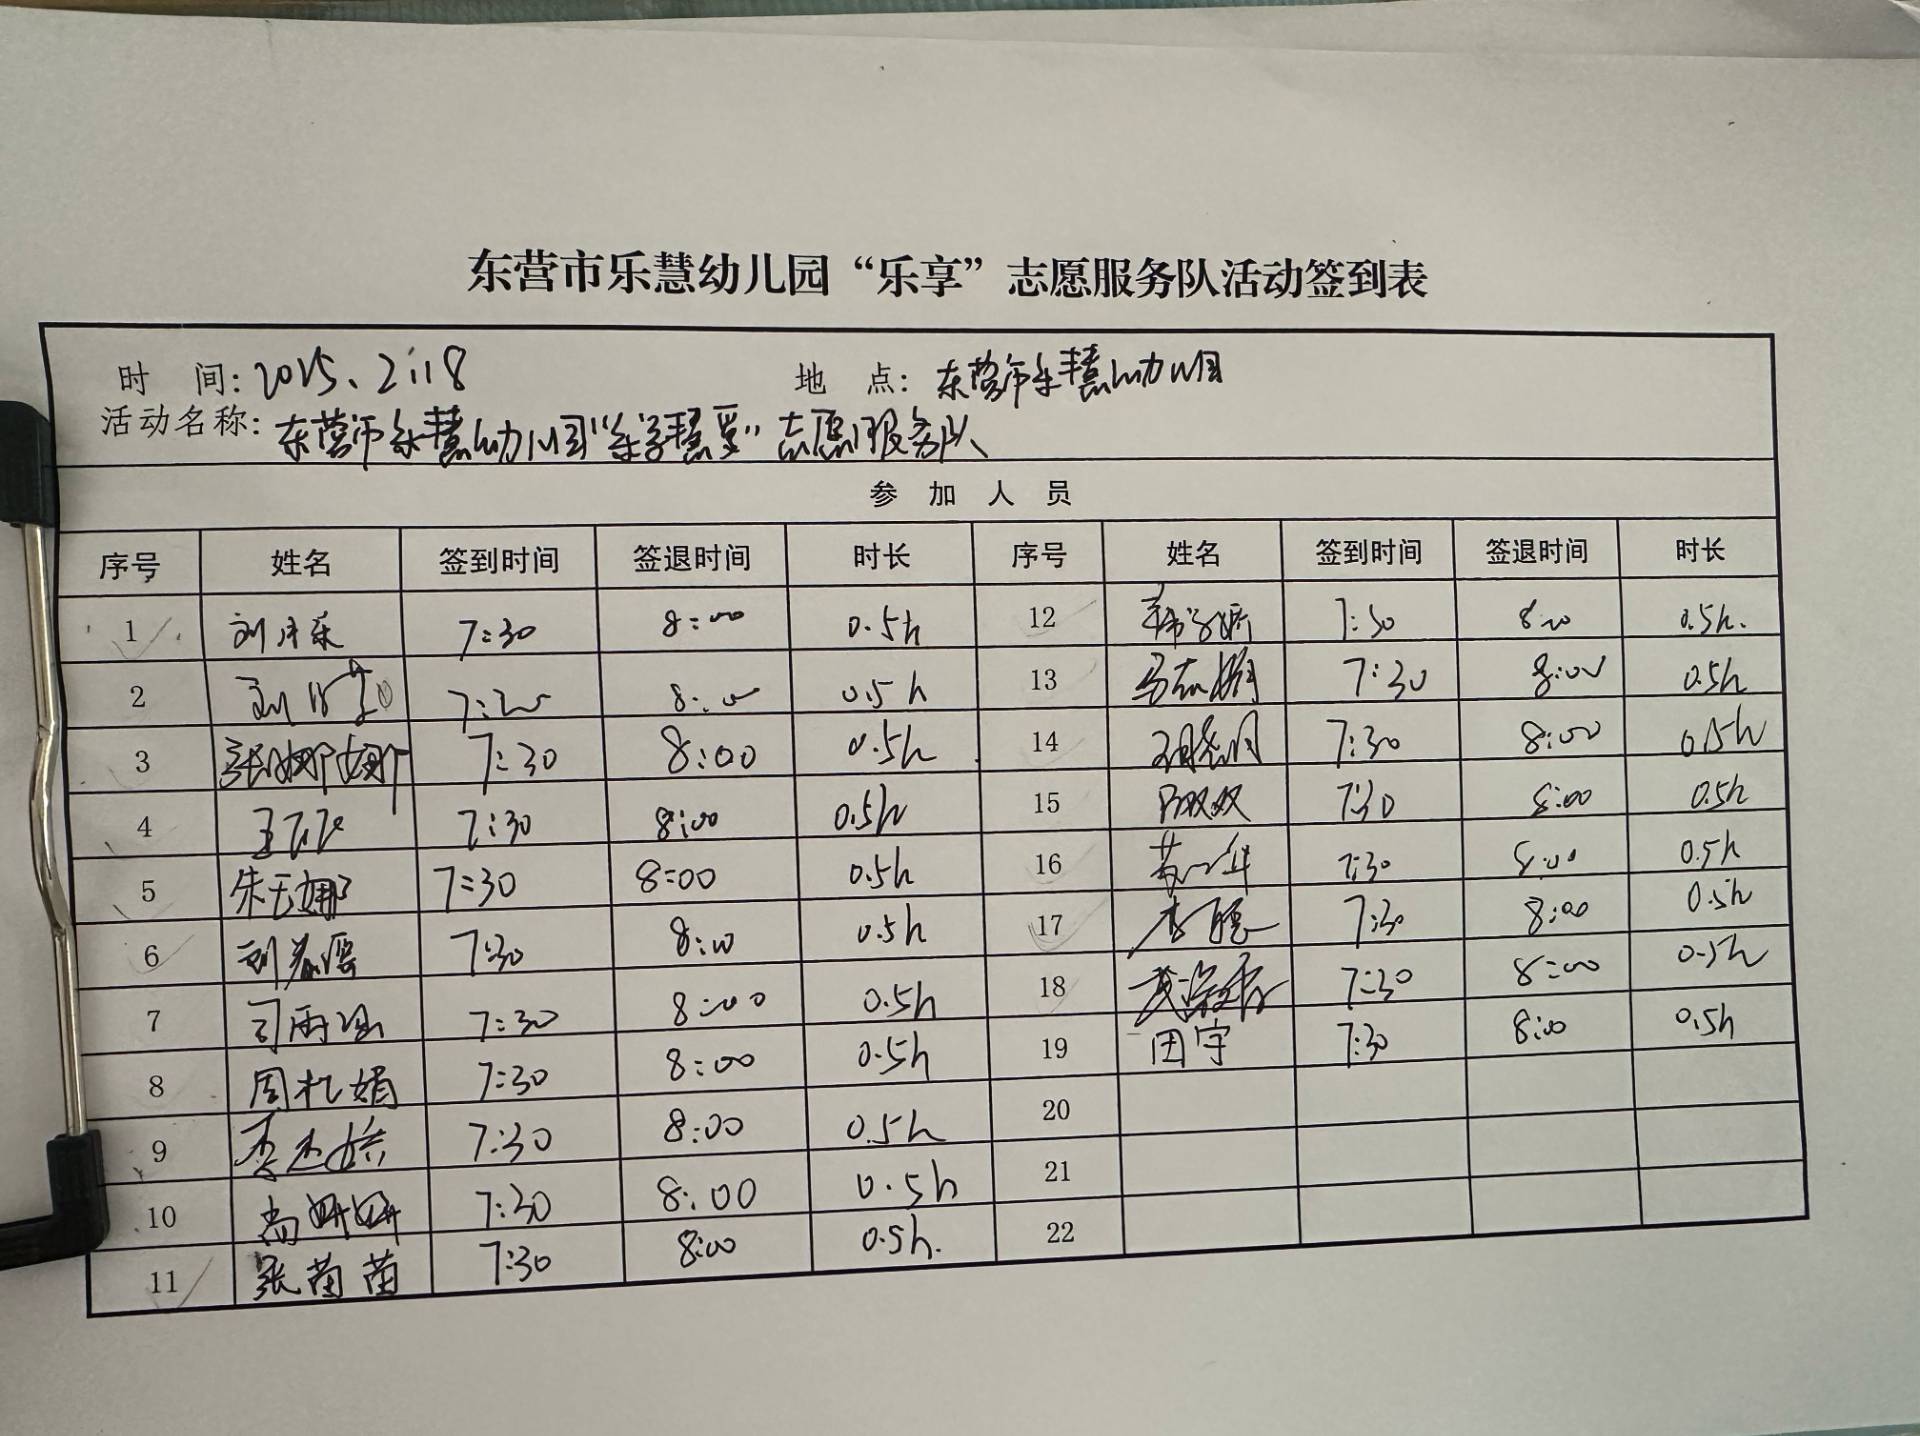 东营市乐慧幼儿园“乐享”志愿服务队活动签到表
时 间: 2025、2:18 地 点: 东营市乐慧幼儿园
活动名称: 东营市乐慧幼儿园“乐学慧爱”志愿服务队
参 加 人 员
序号 姓名 签到时间 签退时间 时长 序号 姓名 签到时间 签退时间 时长
1 7:30 8:00 0.5h 12 7:30 8:00 0.5h.
2 8:00 0.5h 13 7:30 8:00 0.5h
3 张娜娜 7:30 8:00 0.5h 14 7:30 8:00 0.5h
4 7:30 8:00 0.5h 15 双双 7:30 8:00 0.5h
5 朱玉娜 7:30 8:00 0.5h 16 7:30 8:00 0.5h
6 7:30 8:00 0.5h 17 7:30 8:00 0.5h
7 司雨涵 7:30 8:00 0.5h 18 7:30 8:00 0.5h
8 周 娟 7:30 8:00 0.5h 19 田宇 7:30 8:00 0.5h
9 7:30 8:00 0.5h 20
10 尚妍妍 7:30 8:00 0.5h 21
11 张苗苗 7:30 8:00 0.5h. 22